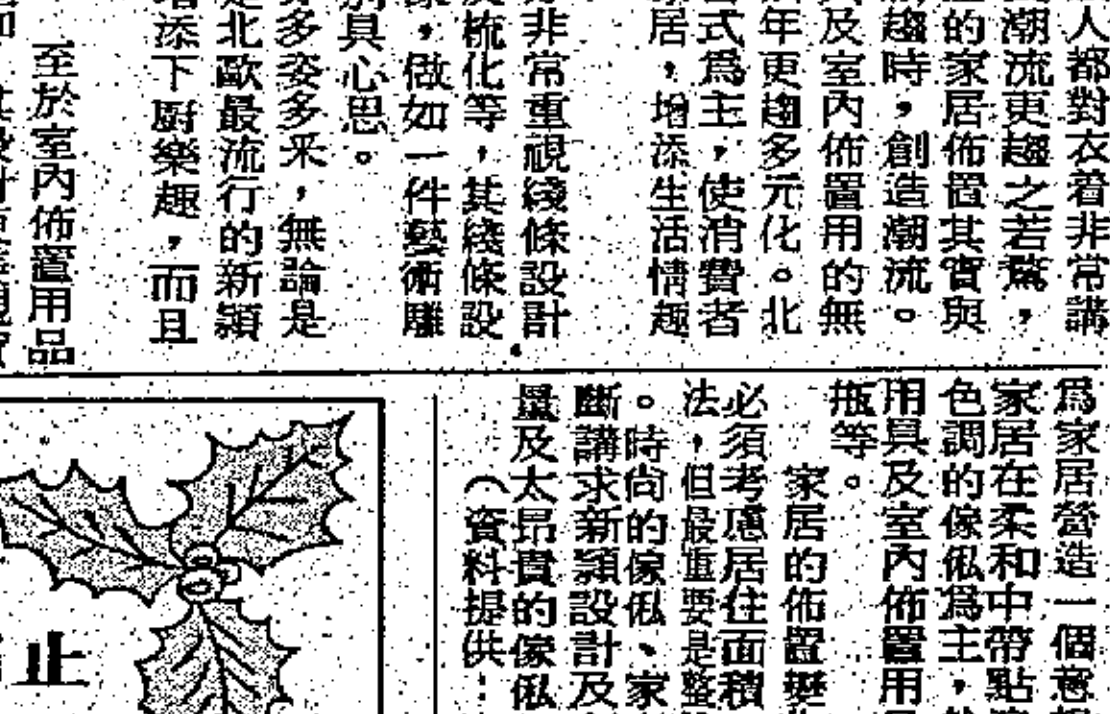 人都對衣着非常講
潮流更趨之若鶩，
的家居佈置其實與
趨時，創造潮流。
及室內佈置用的無
年更趨多元化。北
式爲主，使消費者
居，增添生活情趣
非常重視綫條設計
梳化等，其綫條設
，做如一件藝術雕
具心思。
多姿多釆，無論是
北歐最流行的新穎
添下厨樂趣，而且
至於室內佈置用品
爲家居營造一個意
家居在柔和中帶點
色調的傢俬爲主，
用具及室內佈置用
瓶等。
家居的佈置
必須考慮居住面積
法，但最重要是整
。時尚的傢俬、家
斷講求新穎設計及
量及太昂貴的傢俬
（資料提供：
止